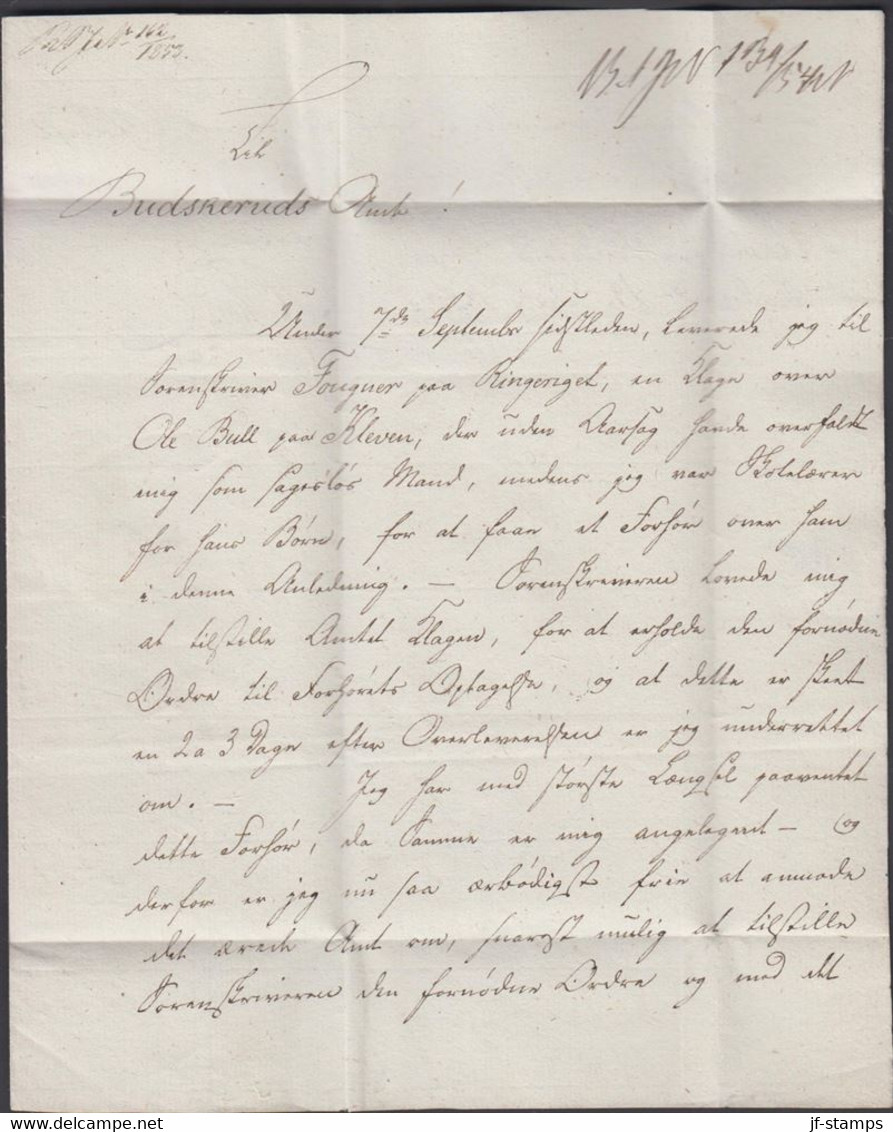 1853.
Til
Budskeruds Amt!
Under 7de Septembr sidstleden, leverede jeg til
Sorenskriver Fougner paa Ringeriget, en Klage over
Ole Bull paa Kleven, der uden Aarsag havde overfaldt
mig som sagesløs Mand, medens jeg var Skolelærer
for hans Børn, for at faae et Forhør over ham
i denne Anledning. — Sorenskriveren lovede mig
at tilstille Amtet Klagen, for at erholde den fornødne
Ordre til Forhørets Optagelse, og at dette er skeet
en 2 a 3 Dage efter Overleverelsen er jeg underrettet
om. — Jeg har med største Længsel paaventet
dette Forhør, da Samme er mig angelegent — og
derfor er jeg nu saa ærbødigst frie at anmode
det ærede Amt om, snarest mulig at tilstille
Sorenskriveren den fornødne Ordre og med det
www.delcampe.net
jf-stamps